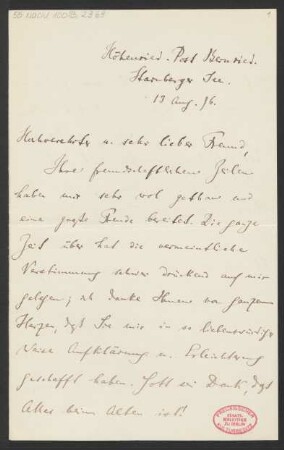 Höhenried. Post Bernried.
Starnberger See.
13 Aug. 96.
Hochverehrter u. sehr lieber Freund,
Ihre freundschaftlichen Zeilen
haben mir sehr wol gethan und
eine große Freude bereitet. Die ganze
Zeit über hat die vermeintliche
Verstimmung schwer drückend auf mir
gelegen; ich danke Ihnen von ganzem
Herzen, dass Sie mir in so liebenswürdiger
Weise Aufklärung u. Erleichterung
geschafft haben. Gott sei Dank, dass
Alles beim Alten ist!